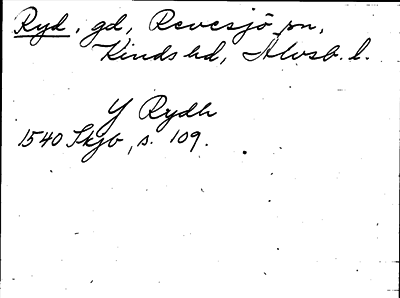 Ryd, gd, Revesjö sn,
Kinds hd, Älvsb. l.
Y Rydh
1540 Skjb, s. 109.